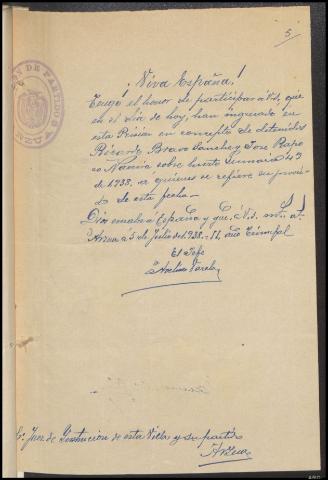 5
¡Viva España!
Tengo el honor de participar a V.S. que
en el día de hoy, han ingresado en
esta Prisión en concepto de detenidos
Ricardo Bravo Sanchez y José Rapo
so Garcia sobre Sumario 49
de 1938. a quienes se refiere su provei
do de esta fecha.
Dios salve a España y que. V.S. m. a.
Arzua a 5 de Julio de 1938.-II. Año Triunfal
El Jefe
Varela
Sr. Juez de Instrucción de esta Villa y su partido
Arzua